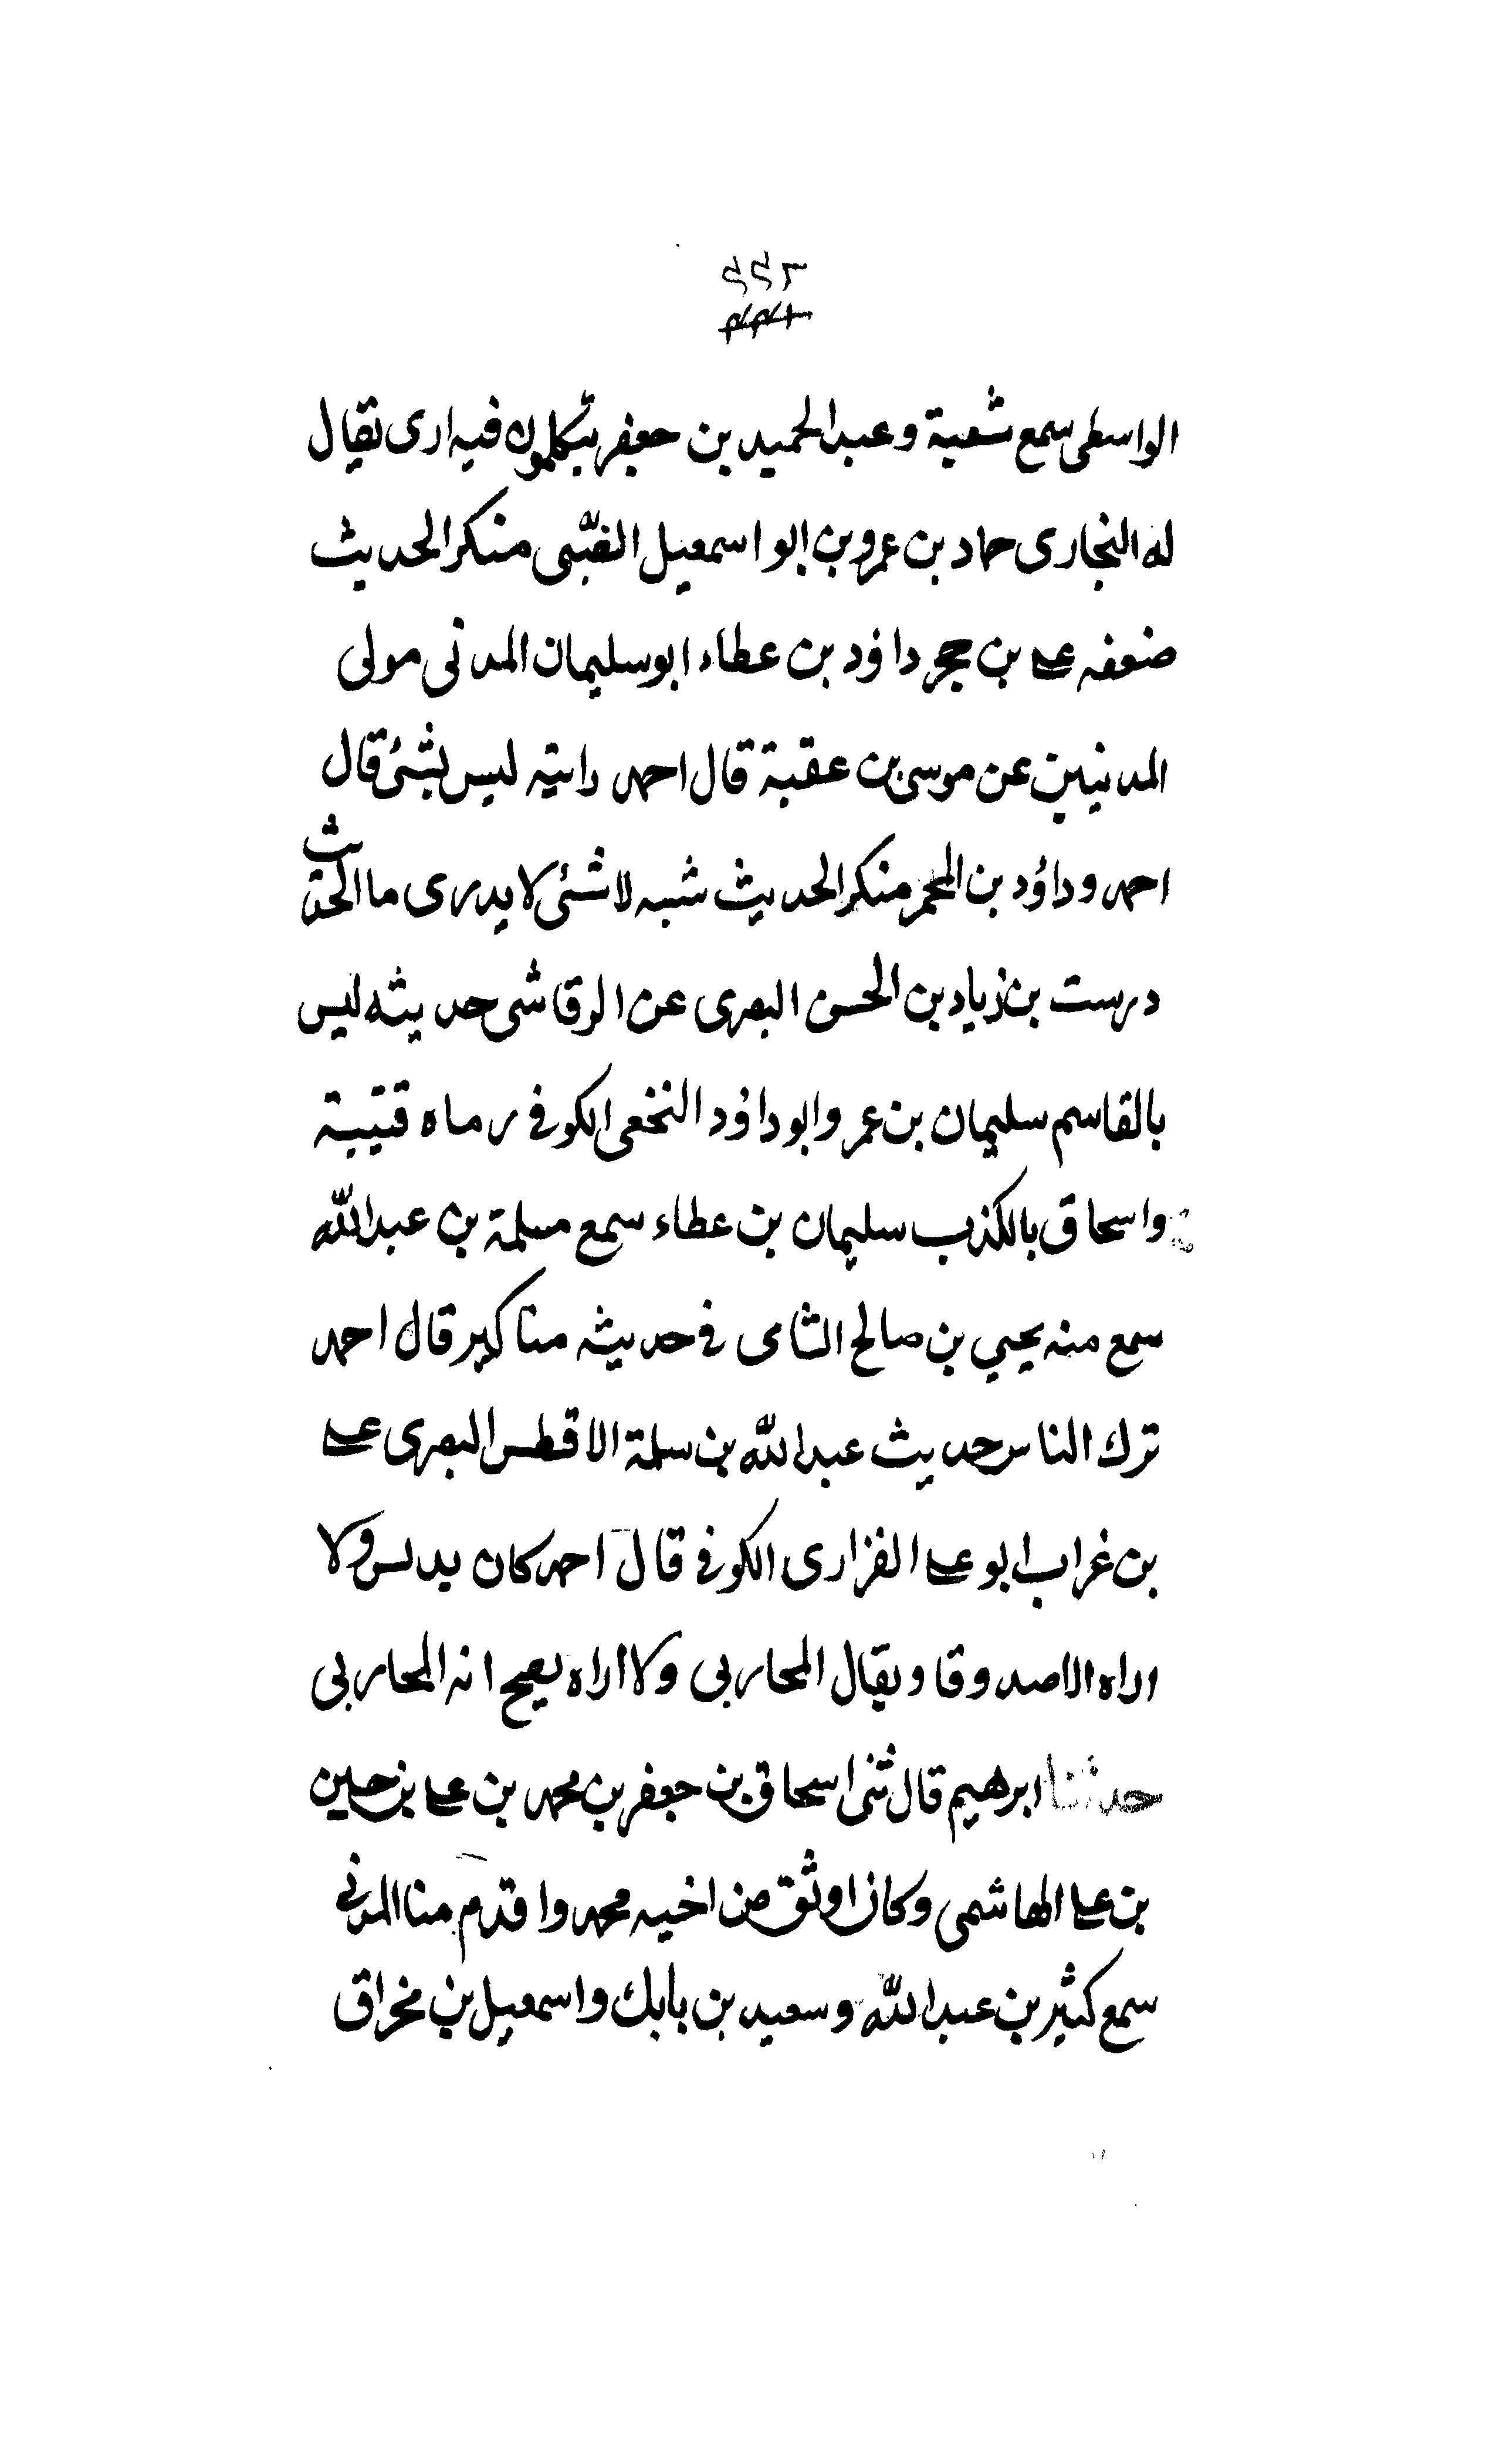 الواسطى سمع شعبة وعبد الحميد بن جعفر يتكلمون فيه ارى يقال
له النجارى حماد بن عمرو بن ابو اسمعيل النصيبى منكر الحديث
ضعفه على بن حجر داؤد بن عطاء ابو سليمان المدنى مولى
المدنيين عن موسى بن عقبة قال احمد رايته ليس بشئ قال
احمد وداؤد بن المحبر منكر الحديث شبه لا شئى لا يدرى ما الحديث
درست بن زياد بن الحسن البصرى عن الرقاشى حديثه ليس
بالقاسم سليمان بن عمر وابو داؤد النخعى الكوفى رماه قتيبة
واسحاق بالكذب سليمان بن عطاء سمع مسلمة بن عبد الله
سمع منه يحيي بن صالح الشامى فى حديثه مناكير قال احمد
ترك الناس حديث عبد الله بن سلمة الاقطس البصرى على
بن غراب ابو على الفزارى الكوفى قال احمد كان يدلس ولا
اراه الا صدوقا ويقال المحاربى ولا اراه يصح انه المحاربى
حدثنا ابرهيم قال ثنى اسحاق بن جعفر بن محمد بن على بن حسين
بن على الهاشمى وكان اوثق من اخيه محمد واقدم منا المدنى
سمع كثير بن عبد الله وسعيد بن بابك واسمعيل بن مخراق